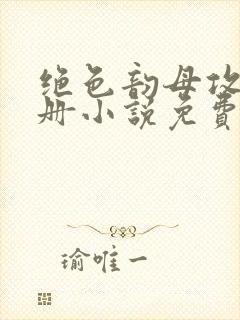 绝色韵母攻
册小说免费
瑜唯一